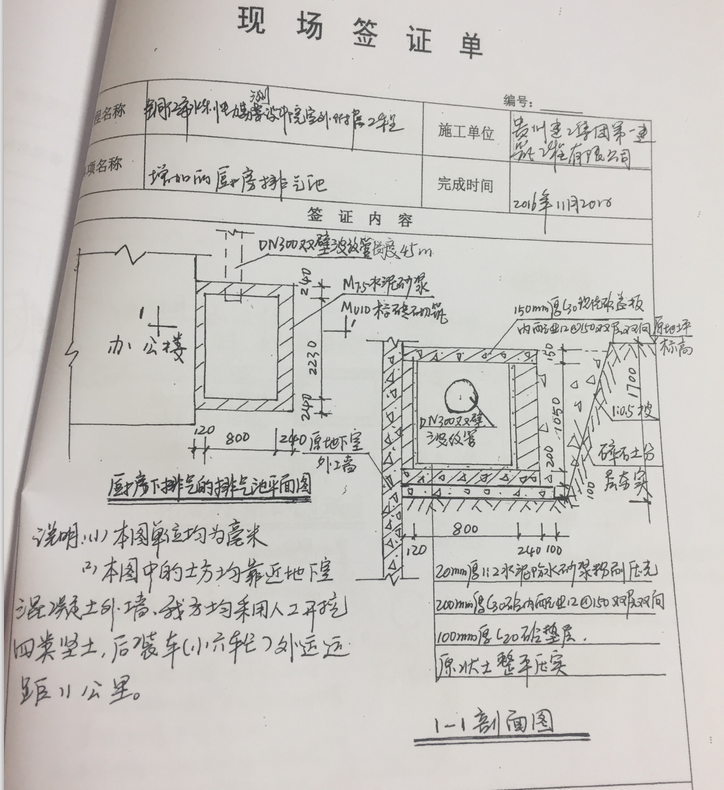 现场签证单
编号：
程名称
施工单位
贵州建工集团第一建
工程有限公司
项名称
增加的厨房排气池
完成时间
2016年11月20日
签证内容
DN300双壁波纹管长度45m
240
M7.5水泥砂浆
MU10标砖砌筑
2230
240
1
1
办公楼
120
800
240
原地下室
外墙
厨房下排气的排气池平面图
150mm厚C30现浇砼盖板
内配⌀12@150双层双向
原地坪
标高
150
1700
1050
1:0.5坡
DN300双壁
波纹管
200
碎石土分
层夯实
100
120
800
240
100
20mm厚1:2水泥防水砂浆粉刷压光
200mm厚C30砼内配⌀12@150双层双向
100mm厚C20砼垫层.
原状土整平压实
1-1剖面图
说明:(1)本图单位均为毫米
(2)本图中的土方均靠近地下室
混凝土外墙,我方均采用人工开挖
四类坚土,后装车(小六轮)外运运
距11公里。